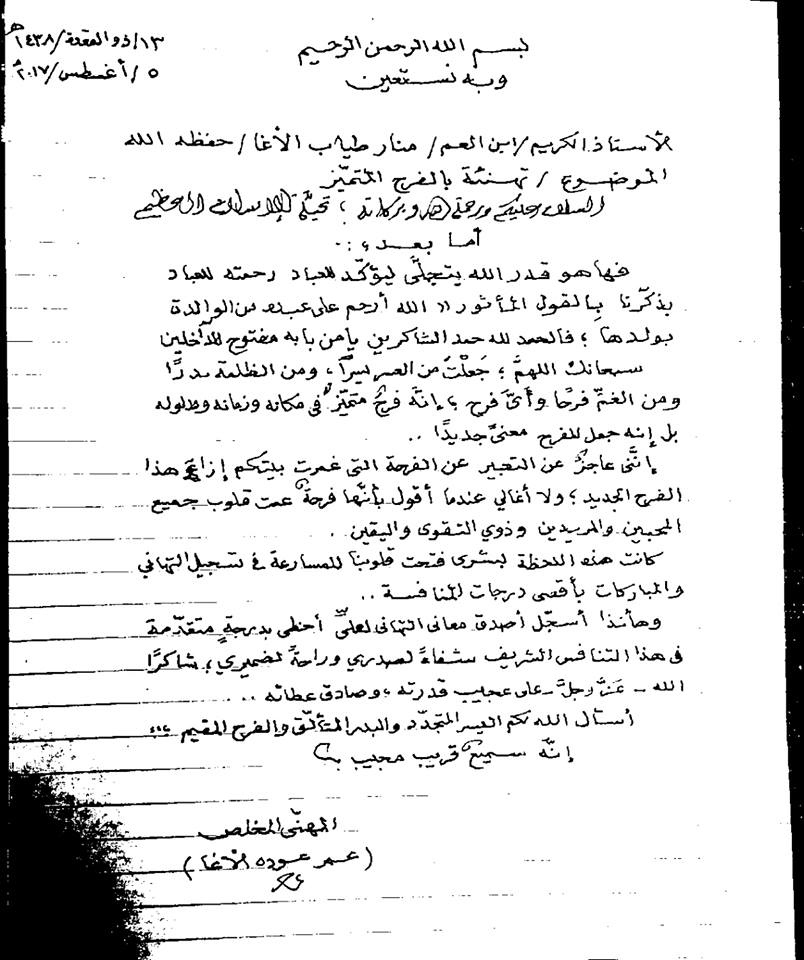 ١٣/ذو القعدة/١٤٣٨هـ
٥/أغسطس/٢٠١٧م
بسم الله الرحمن الرحيم
وبه نستعين
الأستاذ الكريم/ابن العم/ منار طياب الأغا/ حفظه الله
الموضوع / تهنئة بالفرج المتميّز
السلام عليكم ورحمة الله وبركاته ؛ تحيّة الإسلام العظيم
أما بعد ،:-
فها هو قدر الله يتجلّى ليؤكّد للعباد رحمته للعباد
يذكّرنا بالقول المأثور " الله أرحم على عبده من الوالدة
بولدها ؛ فالحمد لله حمد الشاكرين يا من بابه مفتوح للداخلين
سبحانك اللهمَّ ؛ جَعلْتَ من العسر يسرًا ، ومن الظلمة بدرًا
ومن الغمّ فرحًا وأيّ فرج ؛ إنّه فرجٌ متميّزٌ في مكانه وزمانه وطلوله
بل إنه جعل للفرج معنىً جديدًا ..
إنّني عاجزٌ عن التعبير عن الفرحة التي غمرت بيتكم إزاء هذا
الفرج الجديد ؛ ولا أغالي عندما أقول بأنّها فرحةٌ عمت قلوب جميع
المحبين والمريدين وذوي التقوى واليقين ..
كانت هذه اللحظة بشرى فتحت قلوبنا للمسارعة في تسجيل التهاني
والمباركات بأقصى درجات المنافسة ..
وهأنذا أسجّل أصدق معاني التهاني لعلّي أحظى بدرجةٍ متقدّمة
في هذا التنافس الشريف شفاءً لصدري وراحةً لضميري ؛ شاكرًا
الله - عَزَّ وجلَّ - على عجيب قدرته ، وصادق عطائه ..
أسأل الله لكم اليسر المتجدّد والبدر المتألّق والفرج المقيم
إنّه سميعٌ قريب مجيب
المهنّئ المخلص
(عمر عوده الأغا)